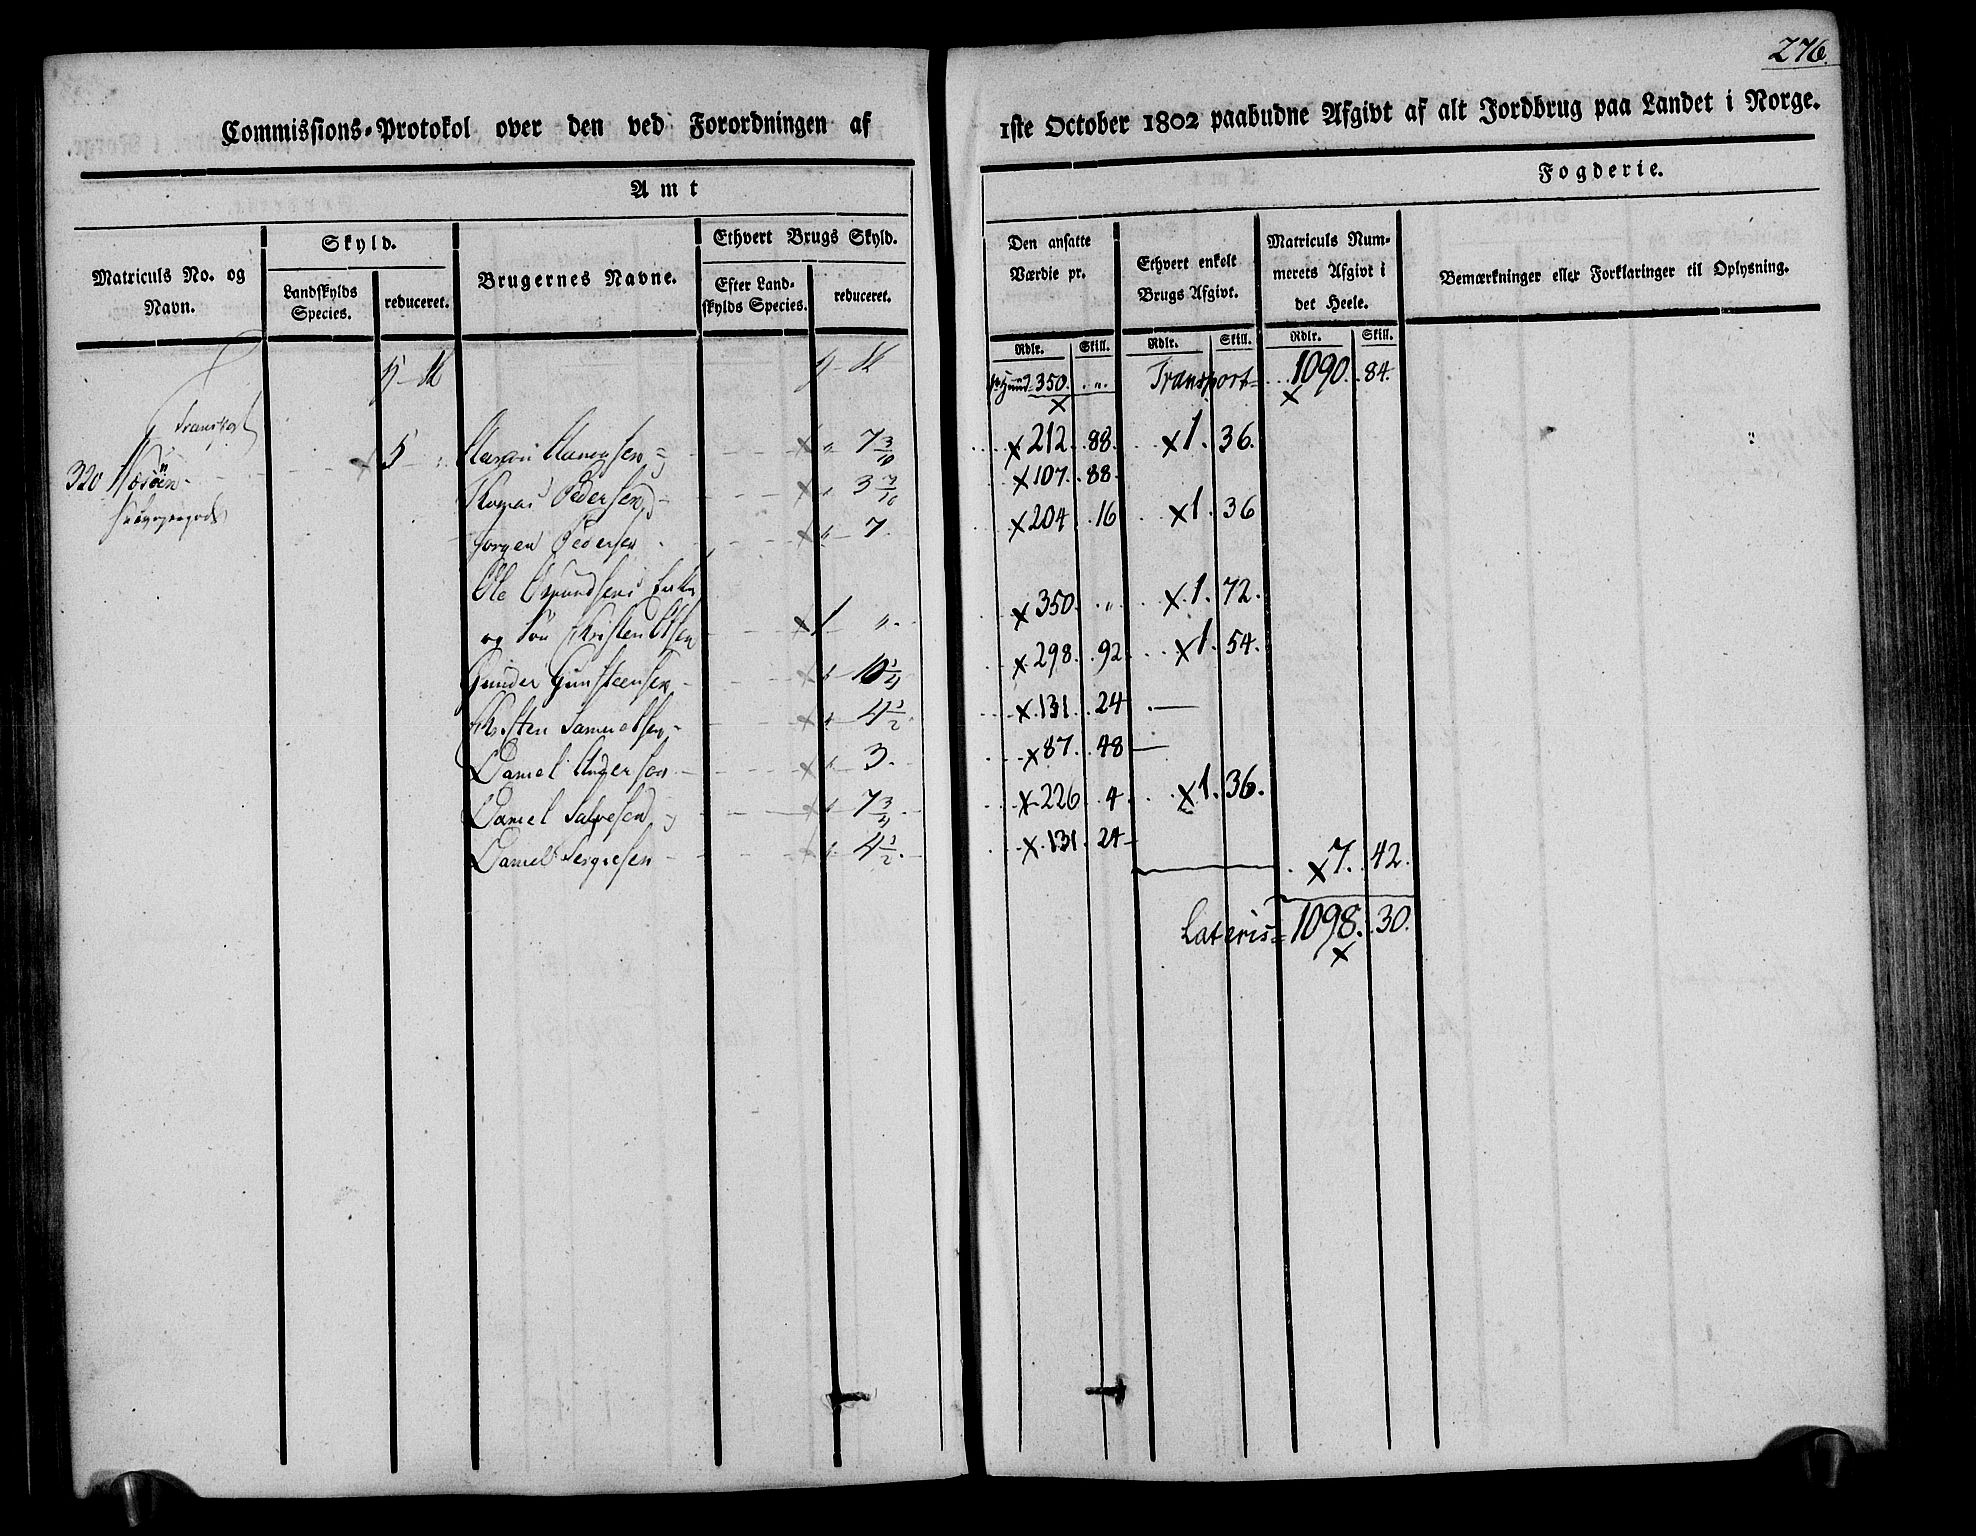 276.
Commissions-Protokol over den ved Forordningen af 1ste October 1802 paabudne Afgivt af alt Jordbrug paa Landet i Norge.
Amt Fogderie.
Matriculs No. og Navn.
Skyld.
Landskylds Species.
reduceret.
Brugernes Navne.
Ethvert Brugs Skyld.
Efter Landskylds Species.
reduceret.
Den ansatte Værdie pr.
Ethvert enkelt Brugs Afgivt.
Matriculs Nummerets Afgivt i det Heele.
Bemærkninger eller Forklaringer til Oplysning.
Rdlr. Skill. Rdlr. Skill. Rdlr. Skill.
350. „. Transport= 1090. 84.
Transport
320 5 Hansen 7 3/10 212. 88. 1. 36.
Pedersen 3 7/10 107. 88.
Jørgen Pedersen 7 204. 16 1. 36
Ole
og Søn Christen Olsen 1 „ 350. „. 1. 72.
Gunder Gunsteensen 10 1/4 298. 92. 1. 54.
Christen Samuelsen 4 1/2 131. 24 —
Daniel 3. 87. 48 —
Daniel Salvesen 7 3/4 226 4. 1. 36.
Daniel 4 1/2. 131. 24 —
7. 42.
Lateris= 1098. 30.